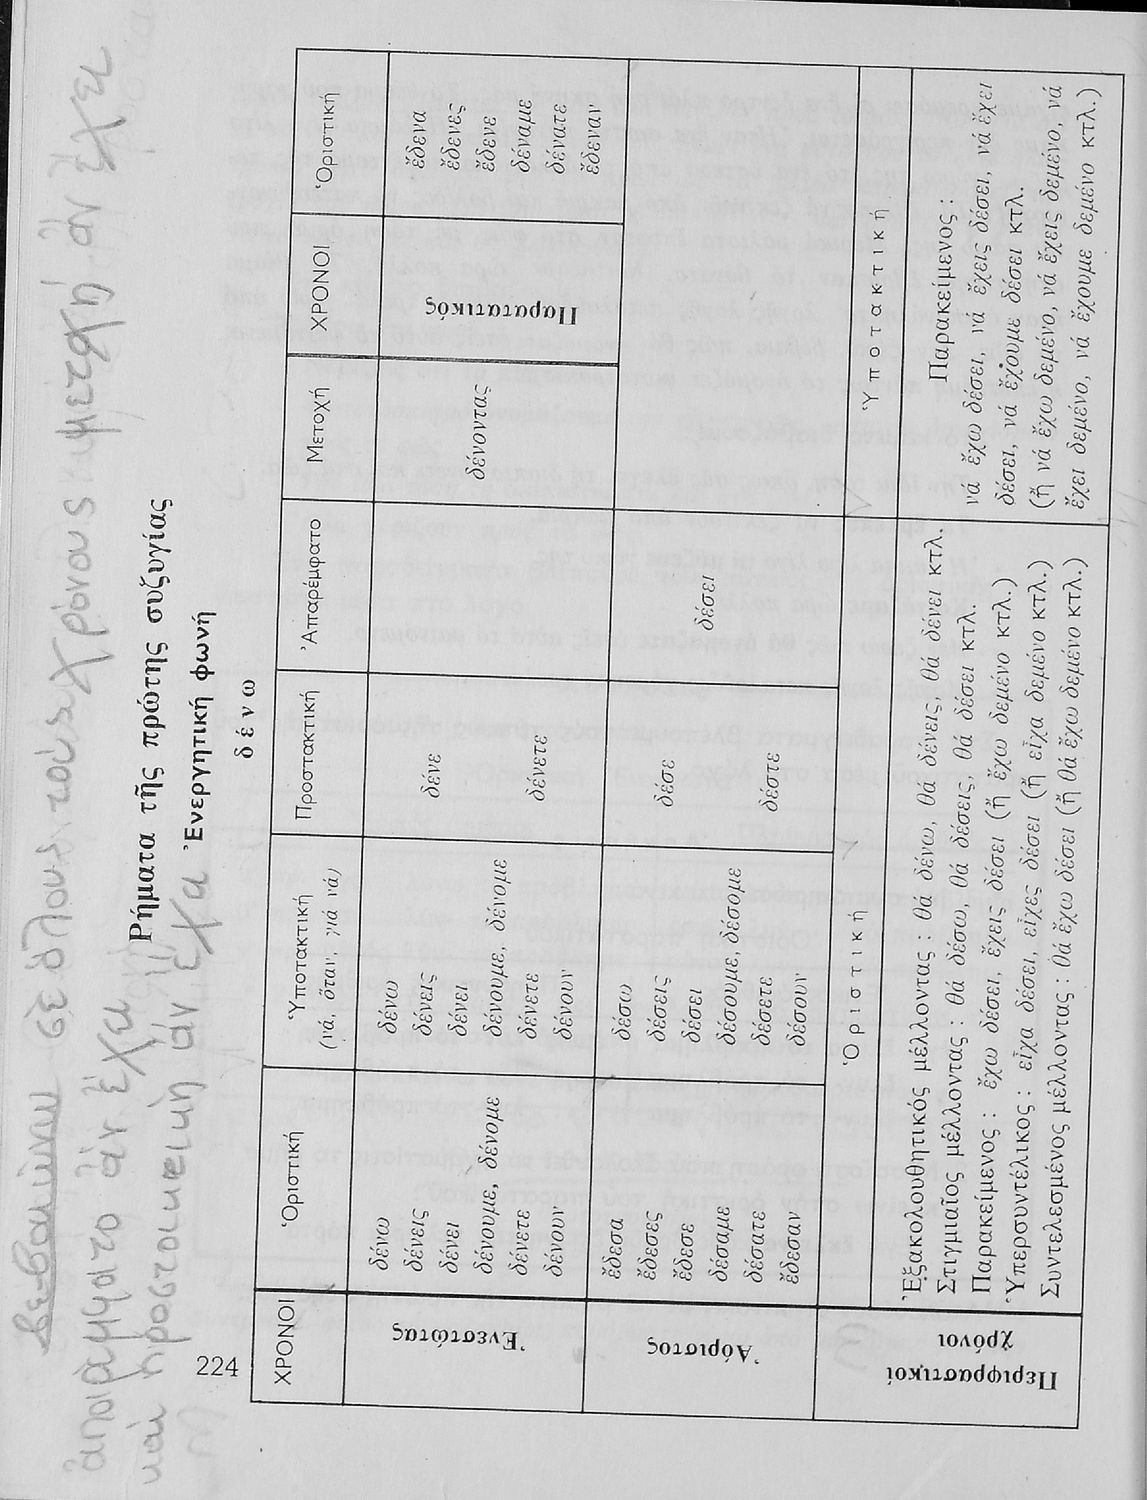 σὲ ὅλους τοὺς χρόνους
ἀπαρέμφατο ἂν ἔχει
καὶ προστακτικὴ ἂν ἔχει
μετοχὴ ἂν ἔχει
224
Ρήματα τῆς πρώτης συζυγίας
Ἐνεργητική φωνή
δένω
ΧΡΟΝΟΙ Ὁριστική Ὑποτακτική Προστακτική Ἀπαρέμφατο Μετοχή ΧΡΟΝΟΙ Ὁριστική
(νά, ὅταν, γιά νά)
Ἐνεστώτας
δένω
δένεις
δένει
δένουμε, δένομε
δένετε
δένουν
δένω
δένεις
δένει
δένουμε, δένομε
δένετε
δένουν
δένε
δένετε
δένοντας
Παρατατικός
ἔδενα
ἔδενες
ἔδενε
δέναμε
δένατε
ἔδεναν
Ἀόριστος
ἔδεσα
ἔδεσες
ἔδεσε
δέσαμε
δέσατε
ἔδεσαν
δέσω
δέσεις
δέσει
δέσουμε, δέσομε
δέσετε
δέσουν
δέσε
δέστε
δέσει
Περιφραστικοί
χρόνοι
Ὁριστική
Ἐξακολουθητικός μέλλοντας : θά δένω, θά δένεις, θά δένει κτλ.
Στιγμιαῖος μέλλοντας : θά δέσω, θά δέσεις, θά δέσει κτλ.
Παρακείμενος : ἔχω δέσει, ἔχεις δέσει (ἤ ἔχω δεμένο κτλ.)
Ὑπερσυντέλικος : εἶχα δέσει, εἶχες δέσει (ἤ εἶχα δεμένο κτλ.)
Συντελεσμένος μέλλοντας : θά ἔχω δέσει (ἤ θά ἔχω δεμένο κτλ.)
Ὑποτακτική
Παρακείμενος :
νά ἔχω δέσει, νά ἔχεις δέσει, νά ἔχει
δέσει, νά ἔχουμε δέσει κτλ.
(ἤ νά ἔχω δεμένο, νά ἔχεις δεμένο, νά
ἔχει δεμένο, νά ἔχουμε δεμένο κτλ.)